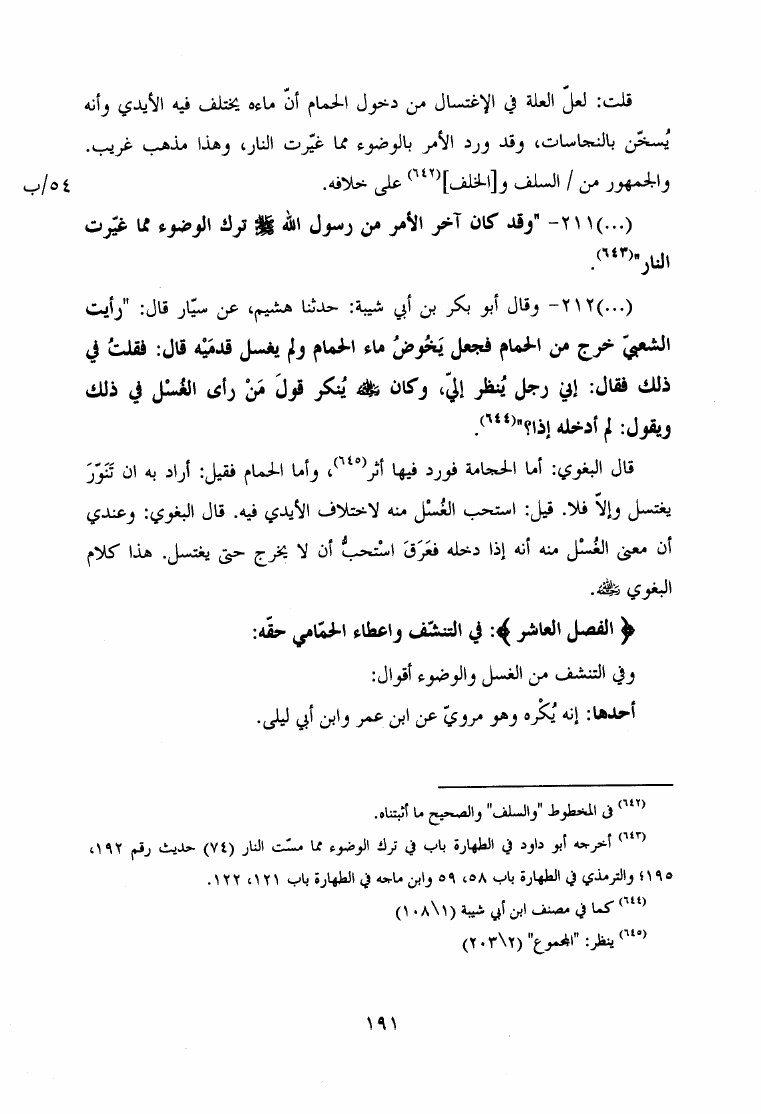 قلت: لعلّ العلة في الإغتسال من دخول الحمام أنّ ماءه يختلف فيه الأيدي وأنه
يُسخّن بالنجاسات، وقد ورد الأمر بالوضوء مما غيّرت النار، وهذا مذهب غريب.
والجمهور من / السلف و[الخلف](٦٤٢) على خلافه. ٥٤/ب
(...)٢١١- "وقد كان آخر الأمر من رسول الله ﷺ ترك الوضوء مما غيّرت
النار"(٦٤٣).
(...)٢١٢- وقال أبو بكر بن أبي شيبة: حدثنا هشيم، عن سيّار قال: "رأيت
الشعبيّ خرج من الحمام فجعل يَخُوضُ ماء الحمام ولم يغسل قدمَيْه قال: فقلتُ في
ذلك فقال: إني رجل يُنظر إليّ، وكان ﵁ يُنكر قولَ مَنْ رأى الغُسْل في ذلك
ويقول: لم أدخله إذا؟"(٦٤٤).
قال البغوي: أما الحجامة فورد فيها أثر(٦٤٥)، وأما الحمام فقيل: أراد به ان تَنَوّرَ
يغتسل وإلاّ فلا. قيل: استحب الغُسْل منه لاختلاف الأيدي فيه. قال البغوي: وعندي
أن معنى الغُسْل منه أنه إذا دخله فعَرَقَ اسْتحبُّ أن لا يخرج حتى يغتسل. هذا كلام
البغوي ﵀.
﴿ الفصل العاشر ﴾: في التنشّف واعطاء الحمّامي حقّه:
وفي التنشف من الغسل والوضوء أقوال:
أحدها: إنه يُكْره وهو مرويّ عن ابن عمر وابن أبي ليلى.
(٦٤٢) في المخطوط "والسلف" والصحيح ما أثبتناه.
(٦٤٣) أخرجه أبو داود في الطهارة باب في ترك الوضوء مما مسّت النار (٧٤) حديث رقم ١٩٢،
١٩٥؛ والترمذي في الطهارة باب ٥٨، ٥٩ وابن ماجه في الطهارة باب ١٢١، ١٢٢.
(٦٤٤) كما في مصنف ابن أبي شيبة (١\١٠٨)
(٦٤٥) ينظر: "المجموع" (٢\٢٠٣)
١٩١